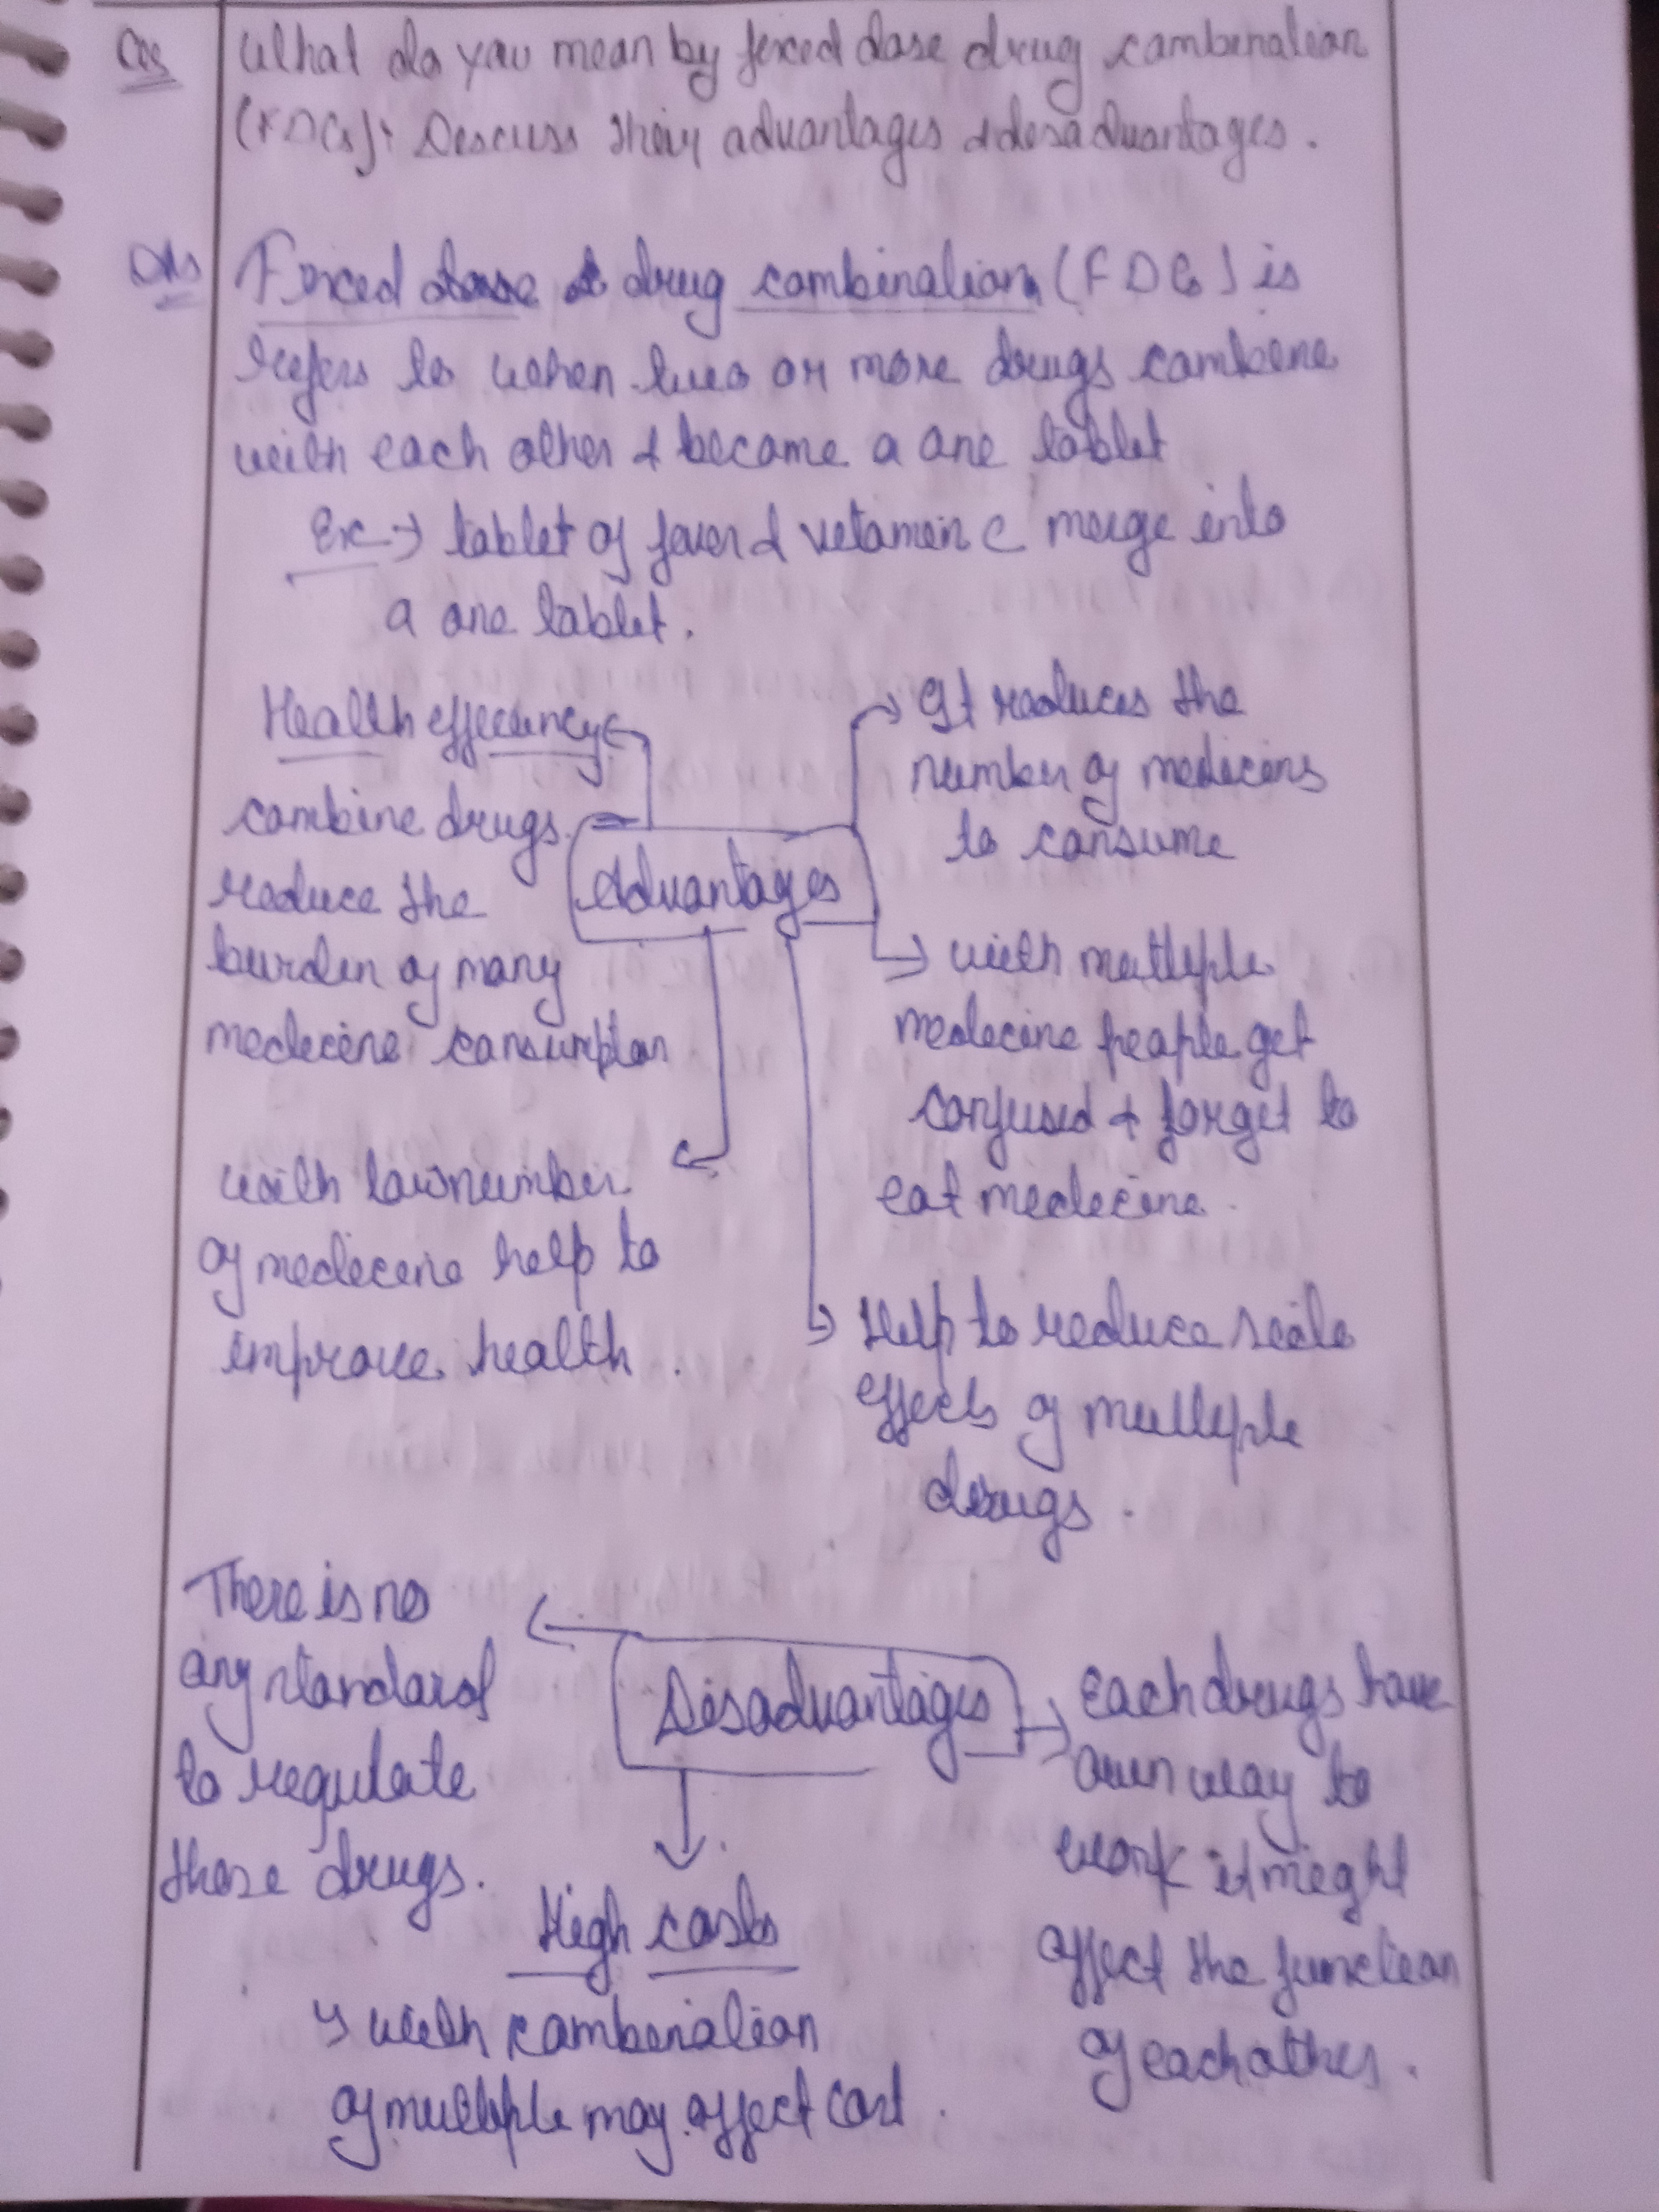 Qs What do you mean by fixed dose drug combination
(FDCs): Discuss their advantages & disadvantages.
Ans Fixed dose drug combination (FDCs) is
refers to when two or more drugs combine
with each other & become a one tablet
Ex → tablet of fever & vitamin C merge into
a one tablet.
Advantages
Health efficiency
combine drugs
reduce the
burden of many
medicine consumption
with low number
of medicine help to
improve health.
It reduces the
number of medicins
to consume
with multiple
medicine people get
confused & forget to
eat medicine.
Help to reduce side
effects of multiple
drugs.
Disadvantages
There is no
any standard
to regulate
these drugs.
High costs
↳ with combination
of multiple may affect cost.
Each drugs have
own way to
work it might
affect the function
of each other.